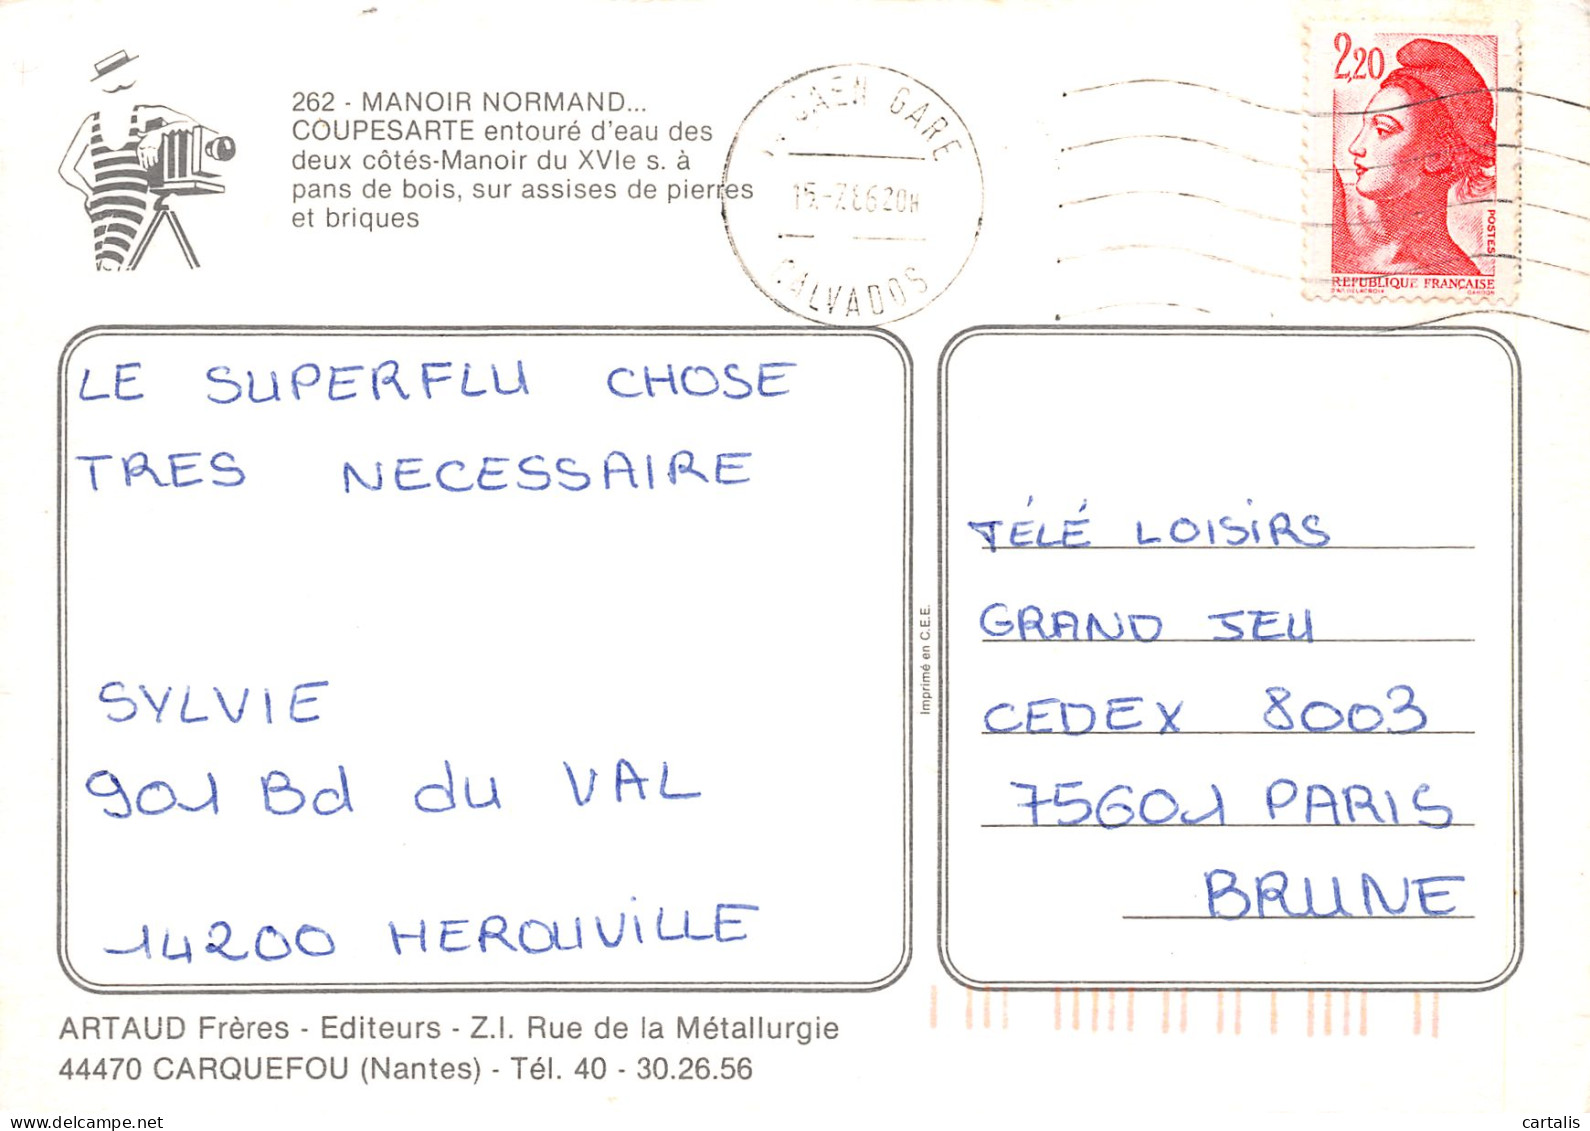 262 - MANOIR NORMAND...
COUPESARTE entouré d'eau des
deux côtés-Manoir du XVIe s. à
pans de bois, sur assises de pierres
et briques
CAEN GARE
15-7 86 20H
CALVADOS
2,20
POSTES
REPUBLIQUE FRANÇAISE
LE SUPERFLU CHOSE
TRES NECESSAIRE
SYLVIE
901 Bd du VAL
14200 HEROUVILLE
Imprimé en C.E.E.
TÉLÉ LOISIRS
GRAND JEU
CEDEX 8003
75601 PARIS
BRUNE
ARTAUD Frères - Editeurs - Z.I. Rue de la Métallurgie
44470 CARQUEFOU (Nantes) - Tél. 40 - 30.26.56
delcampe.net
cartalis